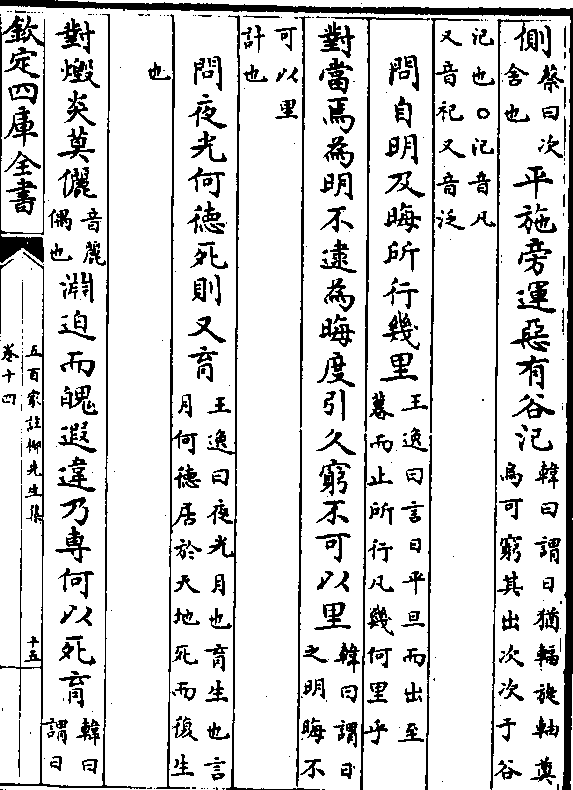 側蔡曰次舍也平施旁運惡有谷汜韓曰謂日猶輻旋軸奠焉可窮其出次次于谷
汜也○汜音凡又音祀又音泛
問自明及晦所行幾里王逸曰言日平旦而出至暮而止所行凡幾何里乎
對當焉為明不逮為晦度引久窮不可以里韓曰謂日之明晦不
可以里計也
問夜光何德死則又育王逸曰夜光月也育生也言月何德居於天地死而復生
也
對燬炎莫儷音麗偶也淵迫而魄遐違乃專何以死育韓曰謂日
欽定四庫全書
五百家註柳先生集
卷十四
十五